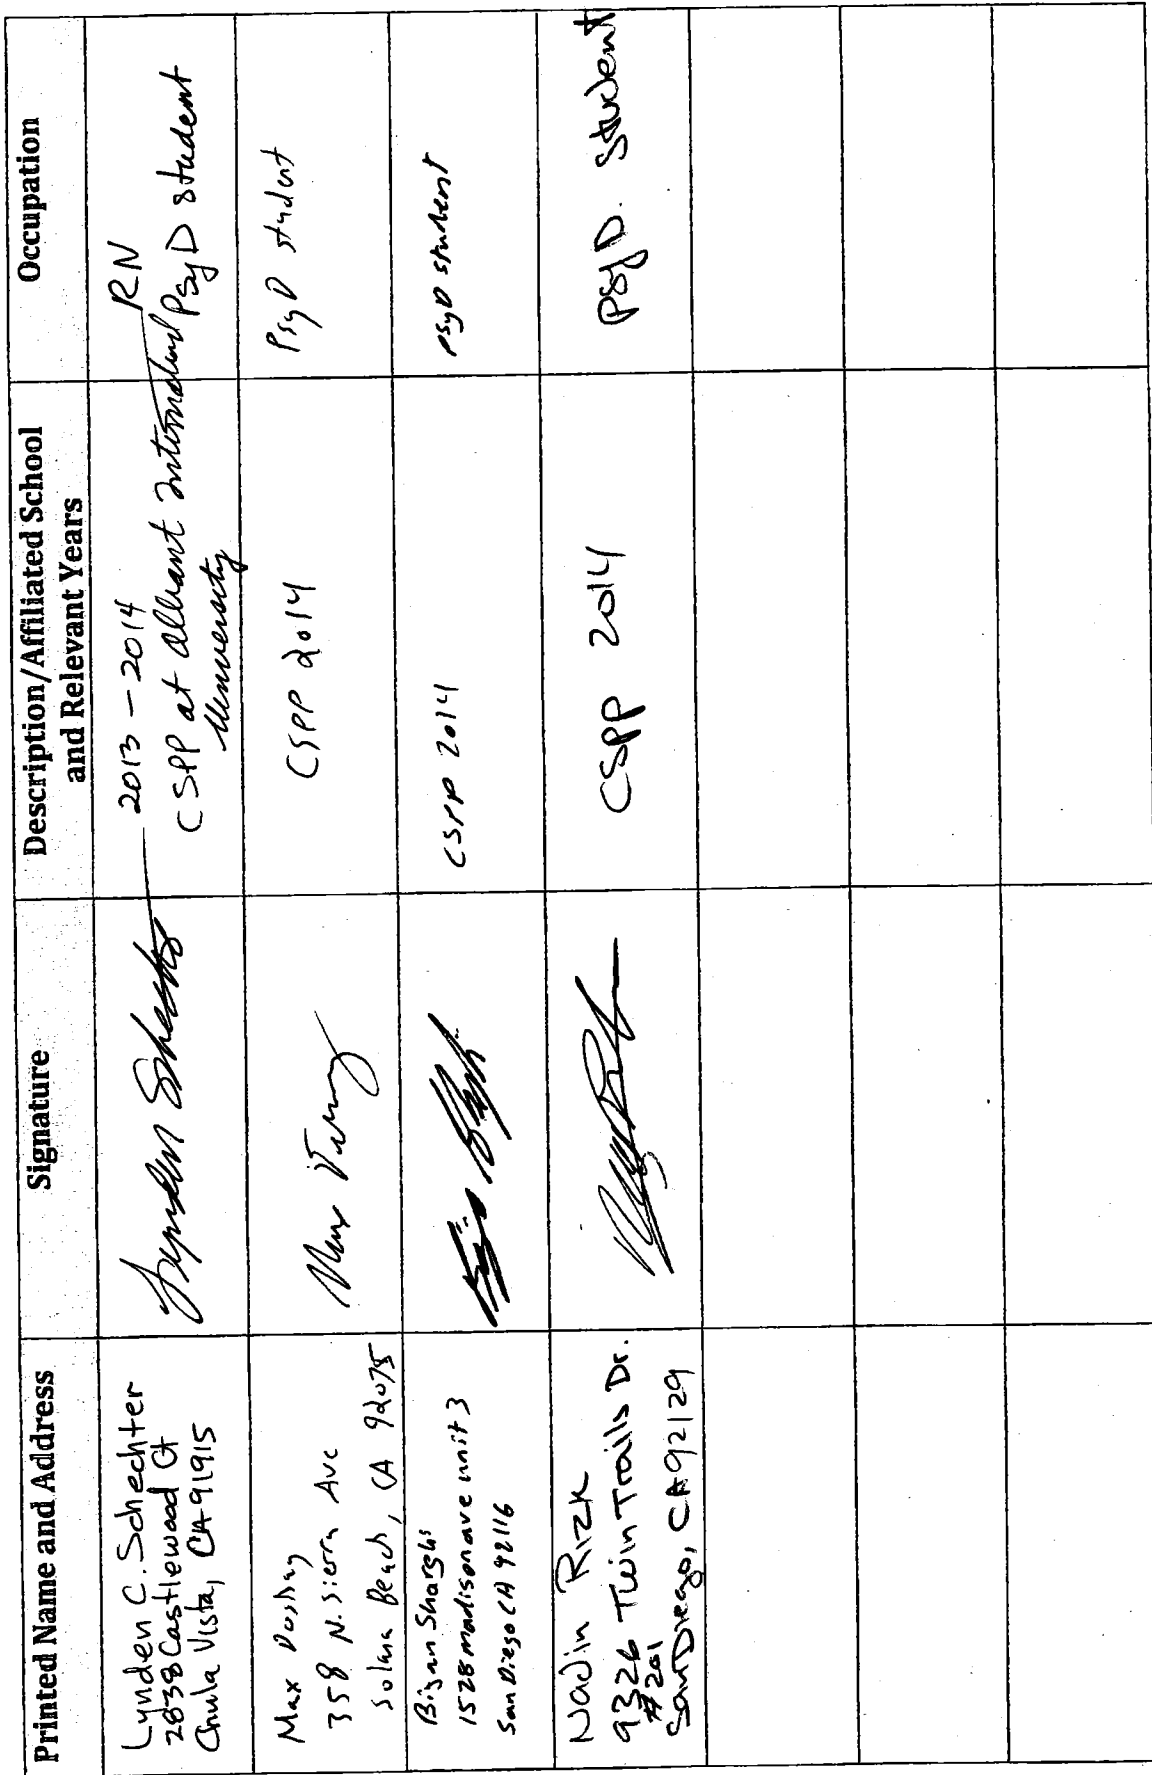 Printed Name and Address
Signature
Description/Affiliated School
and Relevant Years
Occupation
Lynden C. Schechter
2838 Castlewood Ct
Chula Vista, CA 91915
Lynden Schechter
2013 - 2014
CSPP at Alliant International
University
RN
PsyD student
Max
358 N. Sierra Ave
Solana Beach, CA 92075
Max
CSPP 2014
PsyD student
Bijan Sharghi
1528 madison ave unit 3
San Diego CA 92116
CSPP 2014
PsyD student
Nadin Rizk
9326 Twin Trails Dr.
#201
San Diego, CA 92129
CSPP 2014
PsyD. Student